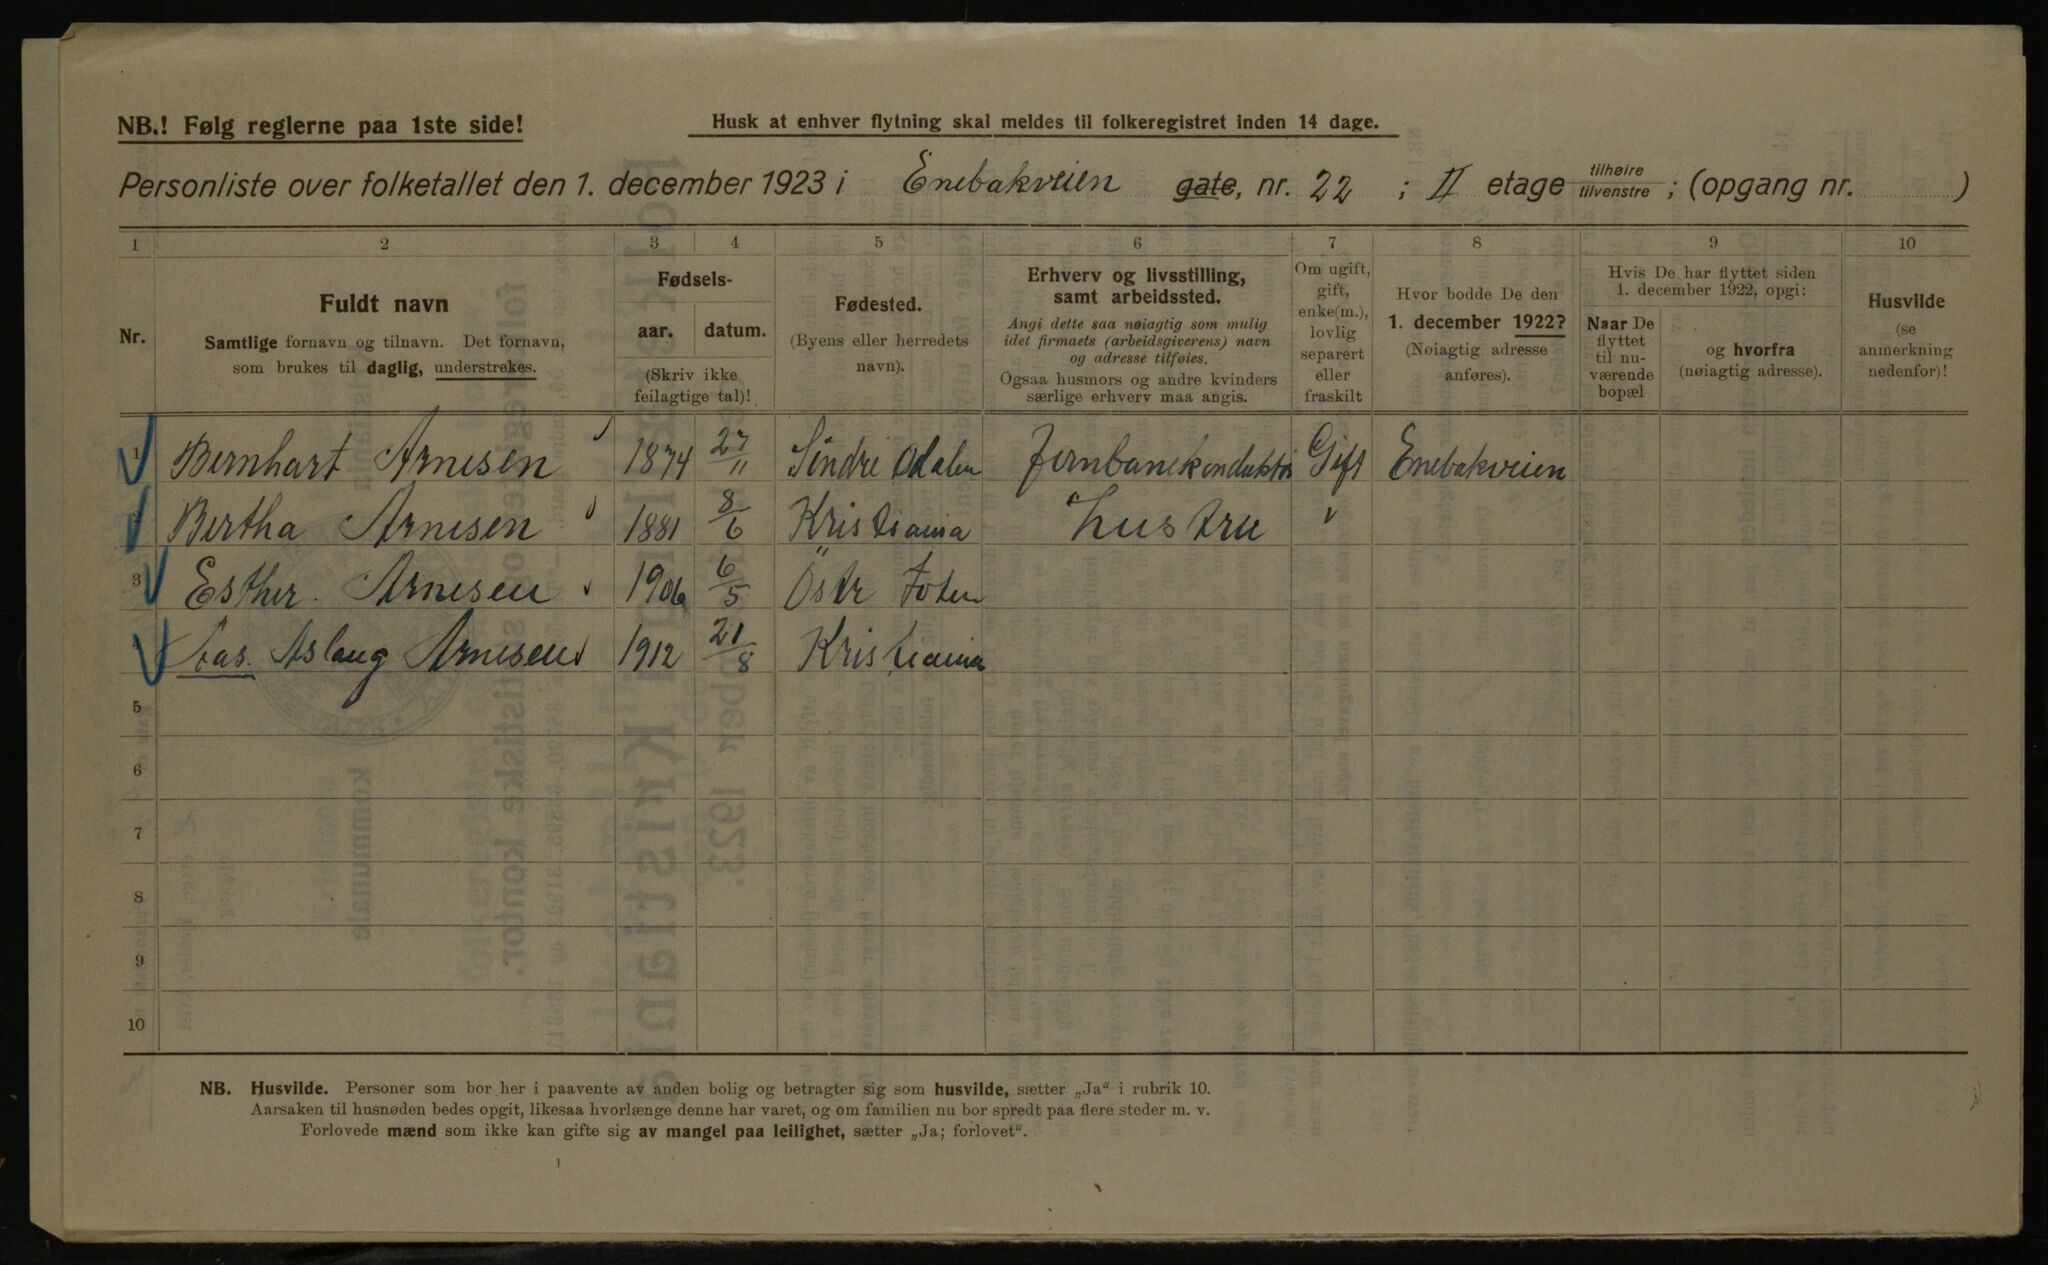 NB.! Følg reglerne paa 1ste side!
Husk at enhver flytning skal meldes til folkeregistret inden 14 dage.
Personliste over folketallet den 1. december 1923 i Enebakveien gate, nr. 22 ; II etage tilhøire tilvenstre ; (opgang nr. )
1 2 3 4 5 6 7 8 9 10
Nr.
Fuldt navn
Samtlige fornavn og tilnavn. Det fornavn,
som brukes til daglig, understrekes.
Fødsels-
aar. datum.
(Skriv ikke
feilagtige tal)!
Fødested.
(Byens eller herredets
navn).
Erhverv og livsstilling,
samt arbeidssted.
Angi dette saa nøiagtig som mulig
idet firmaets (arbeidsgiverens) navn
og adresse tilføies.
Ogsaa husmors og andre kvinders
særlige erhverv maa angis.
Om ugift,
gift,
enke(m.),
lovlig
separert
eller
fraskilt
Hvor bodde De den
1. december 1922?
(Nøiagtig adresse
anføres).
Hvis De har flyttet siden
1. december 1922, opgi:
Naar De
flyttet
til nu-
værende
bopæl
og hvorfra
(nøiagtig adresse).
Husvilde
(se
anmerkning
nedenfor)!
1 Bernhart Arnesen 1874 27/11 Söndre Odalen Jernbanekonduktør Gift Enebakveien
2 Bertha Arnesen 1881 8/6 Kristiania hustru "
3 Esther. Arnesen 1906 6/5 Östr Toten
4 Aas. Aslaug Arnesen 1912 21/8 Kristiania
5
6
7
8
9
10
NB. Husvilde. Personer som bor her i paavente av anden bolig og betragter sig som husvilde, sætter „Ja“ i rubrik 10.
Aarsaken til husnøden bedes opgit, likesaa hvorlænge denne har varet, og om familien nu bor spredt paa flere steder m. v.
Forlovede mænd som ikke kan gifte sig av mangel paa leilighet, sætter „Ja; forlovet“.